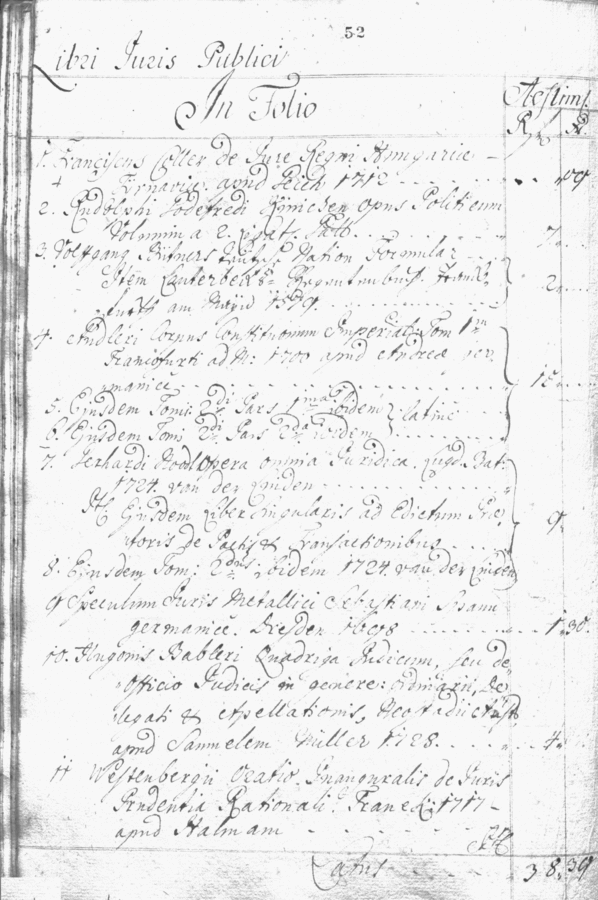 52
Libri Juris Publici
In Folio
Aestim.
R. X.
1. Franciscus Coller de Jure Regni Hungariae
Tyrnaviae apud 1712
2. Rudolphi Godefredi Opus Politicum
Volumina 2.
7.
3. Wolffgang Nation Formular
Item
am Mayn 1579.
2.
4. Corpus Constitutionum Imperial: Tom 1m
Francofurti ad M: 1700 apud Andrea Ger
manice
15
5. Ejusdem Tomi 2di Pars 1ma ibidem latine
6. Ejusdem Tomi 2di Pars 2da ibidem
7. Gerhardi Noodt Opera omnia Juridica. Lugd. Bat:
1724. van der Linden
Ejusdem Liber Singularis ad Edictum Prae
toris de Pactis & Transactionibus
9
8. Ejusdem Tom: 2dus ibidem 1724. van der Linden
9 Speculum Juris Metallici Sebastiani Span
germanice. Dresden
1 30.
10. Hugonis Bableri Quadriga Judicum, seu de
Officio Judicis in genere: Ordinarii, De
legati & Apellationis,
apud Samuelem Müller 1728.
4
11 Westenbergii Oratio Inauguralis de Juris
Prudentia Rationali. Franek: 1717
apud Halmam
Latus
38. 39